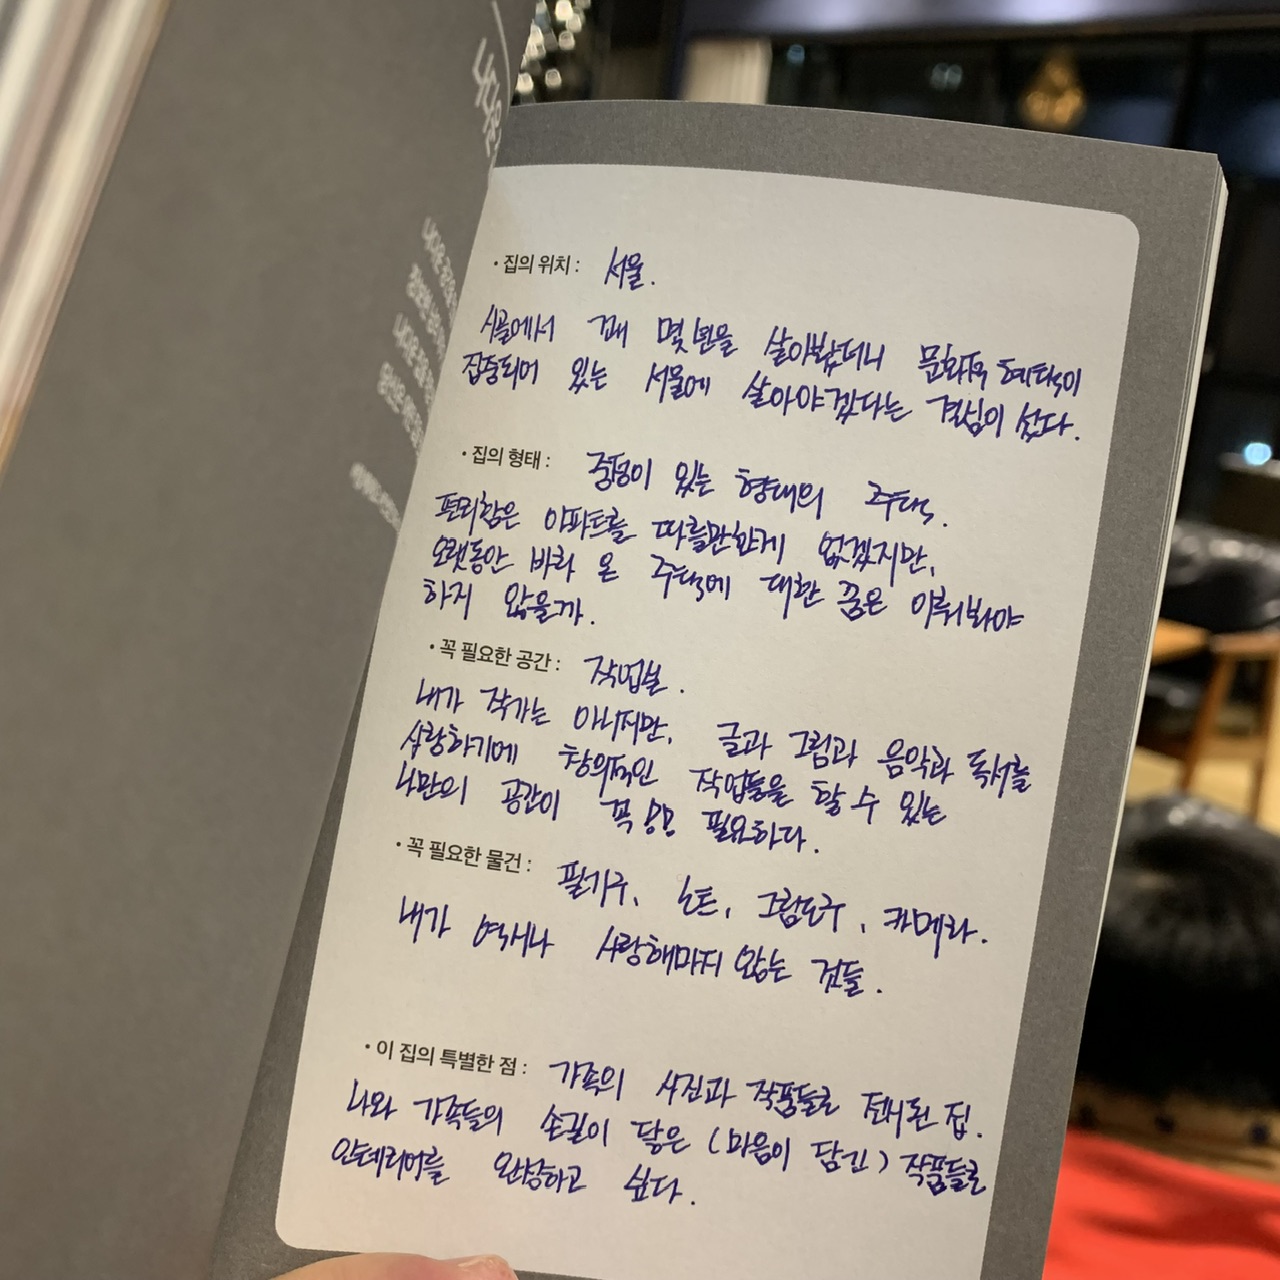 · 집의 위치 : 서울.
시골에서 꽤 몇 년을 살아봤더니 문화적 혜택이
집중되어 있는 서울에 살아야겠다는 결심이 섰다.
· 집의 형태 : 중정이 있는 형태의 주택.
편리함은 아파트를 따를만한게 없겠지만,
오랫동안 바라 온 주택에 대한 꿈은 이뤄봐야
하지 않을까.
· 꼭 필요한 공간 : 작업실.
내가 작가는 아니지만, 글과 그림과 음악과 독서를
사랑하기에 창의적인 작업들을 할 수 있는
나만의 공간이 꼭 필요하다.
· 꼭 필요한 물건 : 필기구, 노트, 그림도구, 카메라.
내가 역시나 사랑해마지 않는 것들.
· 이 집의 특별한 점 : 가족의 사진과 작품들로 전시된 집.
나와 가족들의 손길이 닿은 (마음이 담긴) 작품들로
인테리어를 완성하고 싶다.